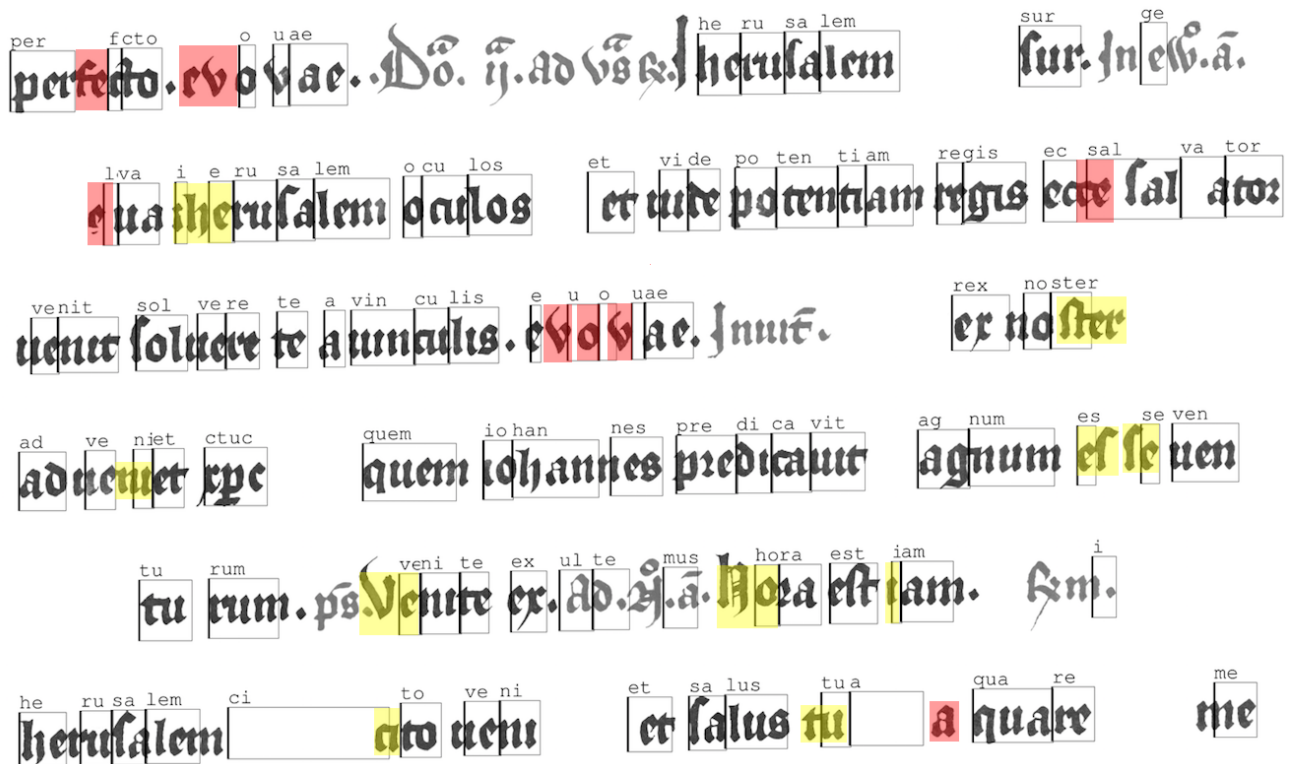 per fcto o uae he ru sa lem sur ge
perfecto. evovae. Do. ij. ad vs R. Iherusalem sur. In ew. a.
lva i e ru sa lem o cu los et vi de po ten ti am regis ec sal va tor
eua iherusalem oculos et uide potentiam regis ecce sal ator
venit sol vere te a vin cu lis e u o uae rex noster
uenit soluere te a uinculis. evovae. Inuit. ex noster
ad ve niet ctuc quem io han nes pre di ca vit ag num es se ven
adueniet xpc quem iohannes predicauit agnum esse uen
tu rum veni te ex ul te mus hora est iam i
tu rum. ps. Venite ex. Ad. a. Hora est iam. Rm.
he ru sa lem ci to ve ni et sa lus tu a qua re me
herusalem cito ueni et salus tu a quare me